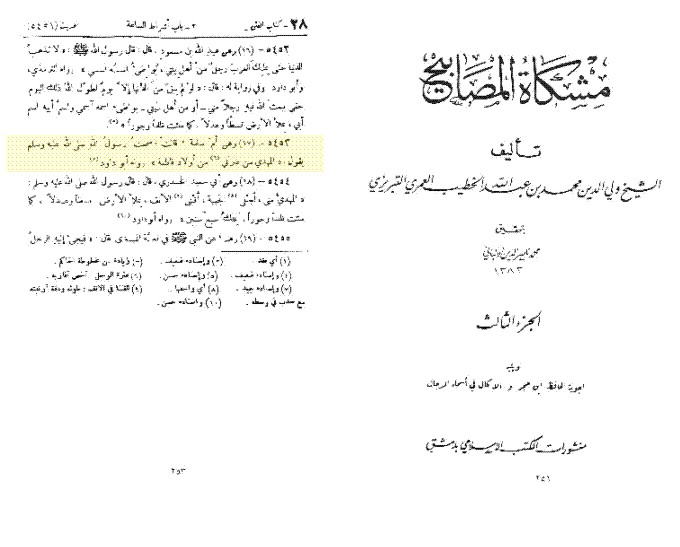 مشكاة المصابيح
تأليف
الشيخ ولي الدين محمد بن عبد الله الخطيب العمري التبريزي
بتحقيق
محمد ناصر الدين الألباني
١٣٨٣
الجزء الثالث
ويليه
أجوبة الحافظ ابن حجر والاكمال في أسماء الرجال
منشورات المكتب الإسلامي بدمشق
٢٥١
٢٨ - كتاب الفتن ـ ٢ - باب أشراط الساعة حديث (٥٤٥٦)
٥٤٥٢ - (١٦) وعن عبد الله بن مسعود ، قال : قال رسول الله ﷺ : « لا تذهب
الدنيا حتى يملك العرب رجل من أهل بيتي ، يواطئ اسمه اسمي » رواه الترمذي ،
وأبو داود . وفي رواية له : قال : « لو لم يبق من الدنيا إلا يوم لطول الله ذلك اليوم
حتى يبعث الله فيه رجلاً مني - أو من أهل بيتي - يواطئ اسمه اسمي واسم أبيه اسم
أبي ، يملأ الأرض قسطاً وعدلاً كما ملئت ظلماً وجوراً »
٥٤٥٣ - (١٧) وعن أم سلمة ، قالت : سمعت رسول الله صلى الله عليه وسلم
يقول : « المهدي من عترتي من أولاد فاطمة » رواه أبو داود
٥٤٥٤ - (١٨) وعن أبي سعيد الخدري ، قال : قال رسول الله صلى الله عليه وسلم :
« المهدي مني ، أجلى الجبهة ، أقنى الأنف ، يملأ الأرض قسطاً وعدلاً ، كما
ملئت ظلماً وجوراً ، يملك سبع سنين » رواه أبو داود
٥٤٥٥ - (١٩) وعنه عن النبي ﷺ في قصة المهدي قال : « فيجيء إليه الرجل
(١) أي فقد . (٢) وإسناده ضعيف . (٣) زيادة من مخطوطة الحاكم .
(٤) وإسناده ضعيف . (٥) وإسناده حسن . (٦) عترة الرجل أخص أقاربه .
(٧) وإسناده جيد . (٨) أي واسعها . (٩) القنا في الأنف : طوله ودقة أرنبته
مع حدب في وسطه . (١٠) وإسناده حسن .
٢٥٣